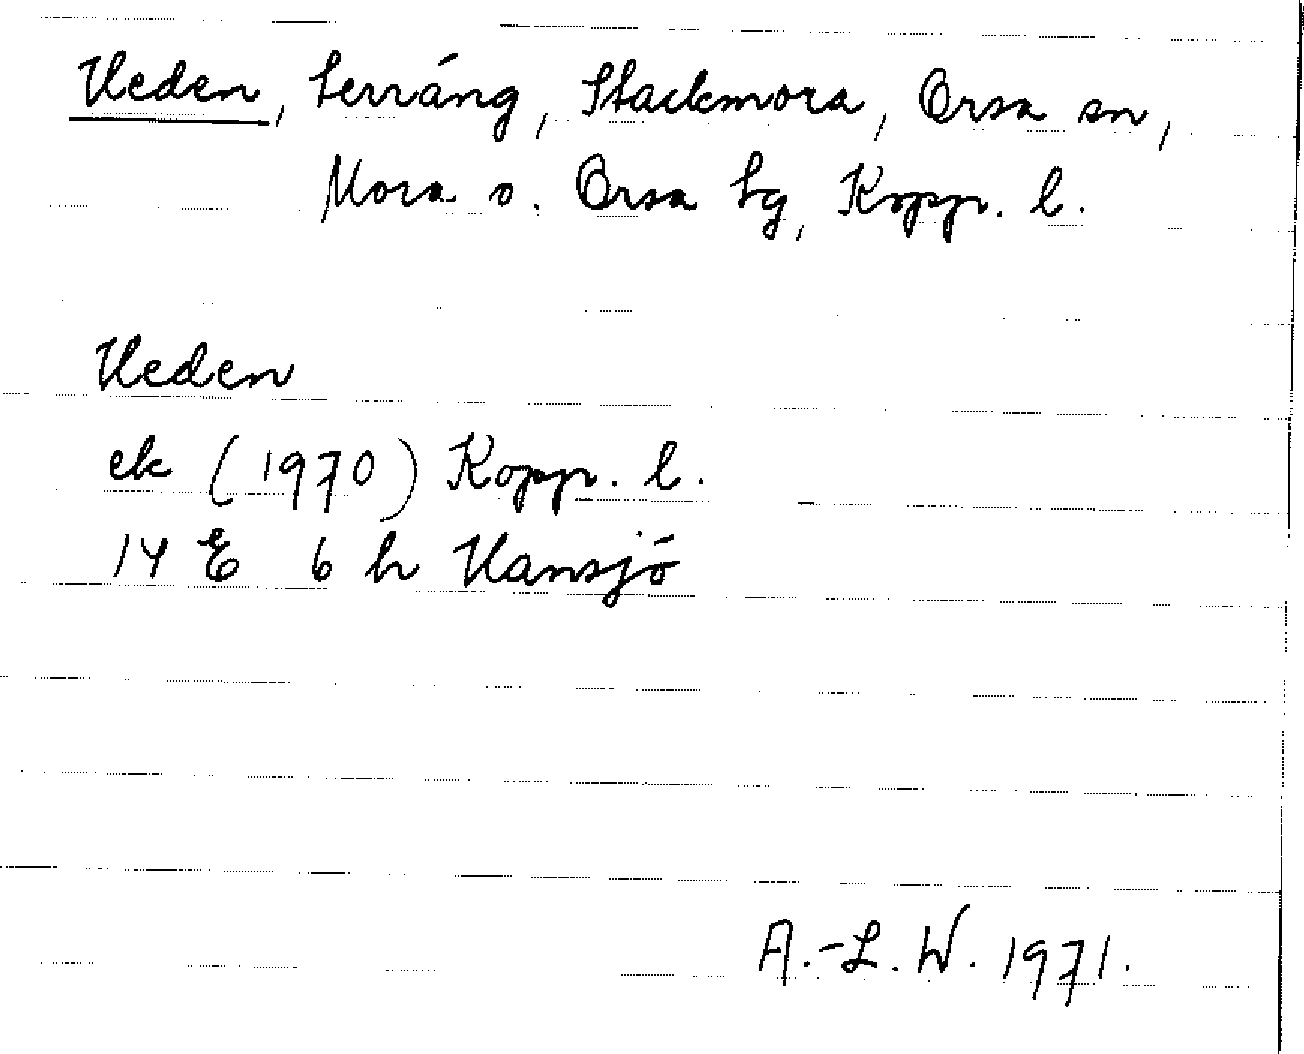 Heden, terräng, Stackmora, Orsa sn,
Mora o. Orsa tg, Kopp. l.
Heden
ek (1970) Kopp. l.
14 E 6 h Hansjö
A.-L. W. 1971.